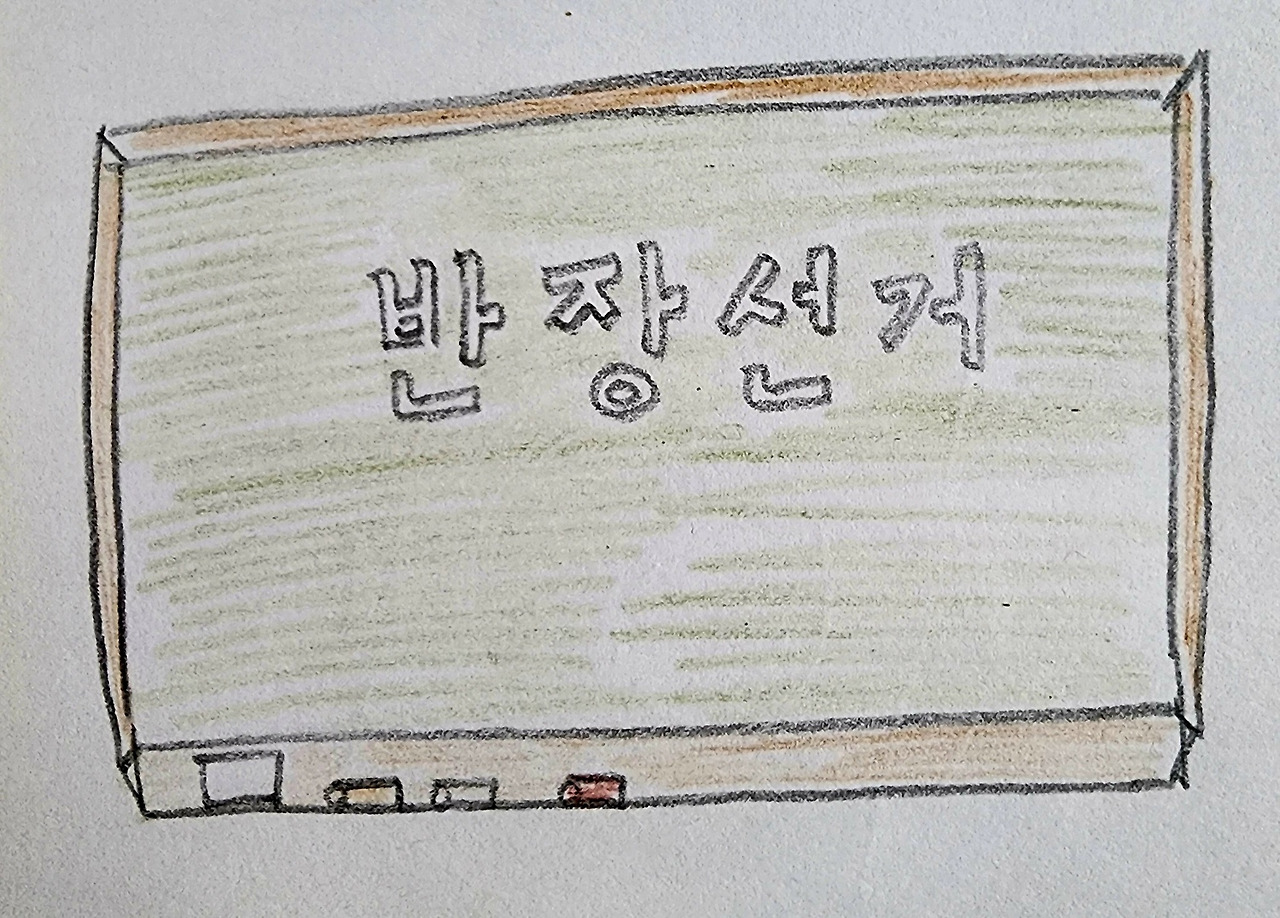 반장선거